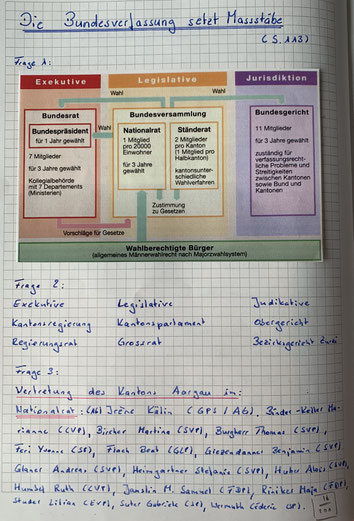 Die Bundesverfassung setzt Massstäbe
(S. 113)
Frage 1:
Exekutive
Legislative
Jurisdiktion
Wahl
Wahl
Bundesrat
Bundespräsident
für 1 Jahr gewählt
7 Mitglieder
für 3 Jahre gewählt
Kollegialbehörde
mit 7 Departements
(Ministerien)
Wahl
Bundesversammlung
Nationalrat
1 Mitglied
pro 20000
Einwohner
für 3 Jahre
gewählt
Ständerat
2 Mitglieder
pro Kanton
(1 Mitglied pro
Halbkanton)
kantonsunter-
schiedliche
Wahlverfahren
Zustimmung
zu Gesetzen
Bundesgericht
11 Mitglieder
für 3 Jahre gewählt
zuständig für
verfassungsrecht-
liche Probleme und
Streitigkeiten
zwischen Kantonen
sowie Bund und
Kantonen
Vorschläge für Gesetze
Wahlberechtigte Bürger
(allgemeines Männerwahlrecht nach Majorzwahlsystem)
Frage 2:
Exekutive Legislative Judikative
Kantonsregierung Kantonsparlament Obergericht
Regierungsrat Grossrat Bezirksgericht
Frage 3:
Vertretung des Kantons Aargau im:
Nationalrat: (AG) Irène Kälin (GPS / AG), Binder-Keller Ma-
rianne (CVP), Bircher Martina (SVP), Burgherr Thomas (SVP),
Feri Yvonne (SP), Flach Beat (GLP), Giezendanner Benjamin (SVP),
Glarner Andreas (SVP), Heimgartner Stefanie (SVP), Huber Alois (SVP),
Humbel Ruth (CVP), Jauslin M. Samuel (FDP), Riniker Maja (FDP),
Studer Lilian (EVP), Suter Gabriela (SP), Wermuth Cédric (SP).